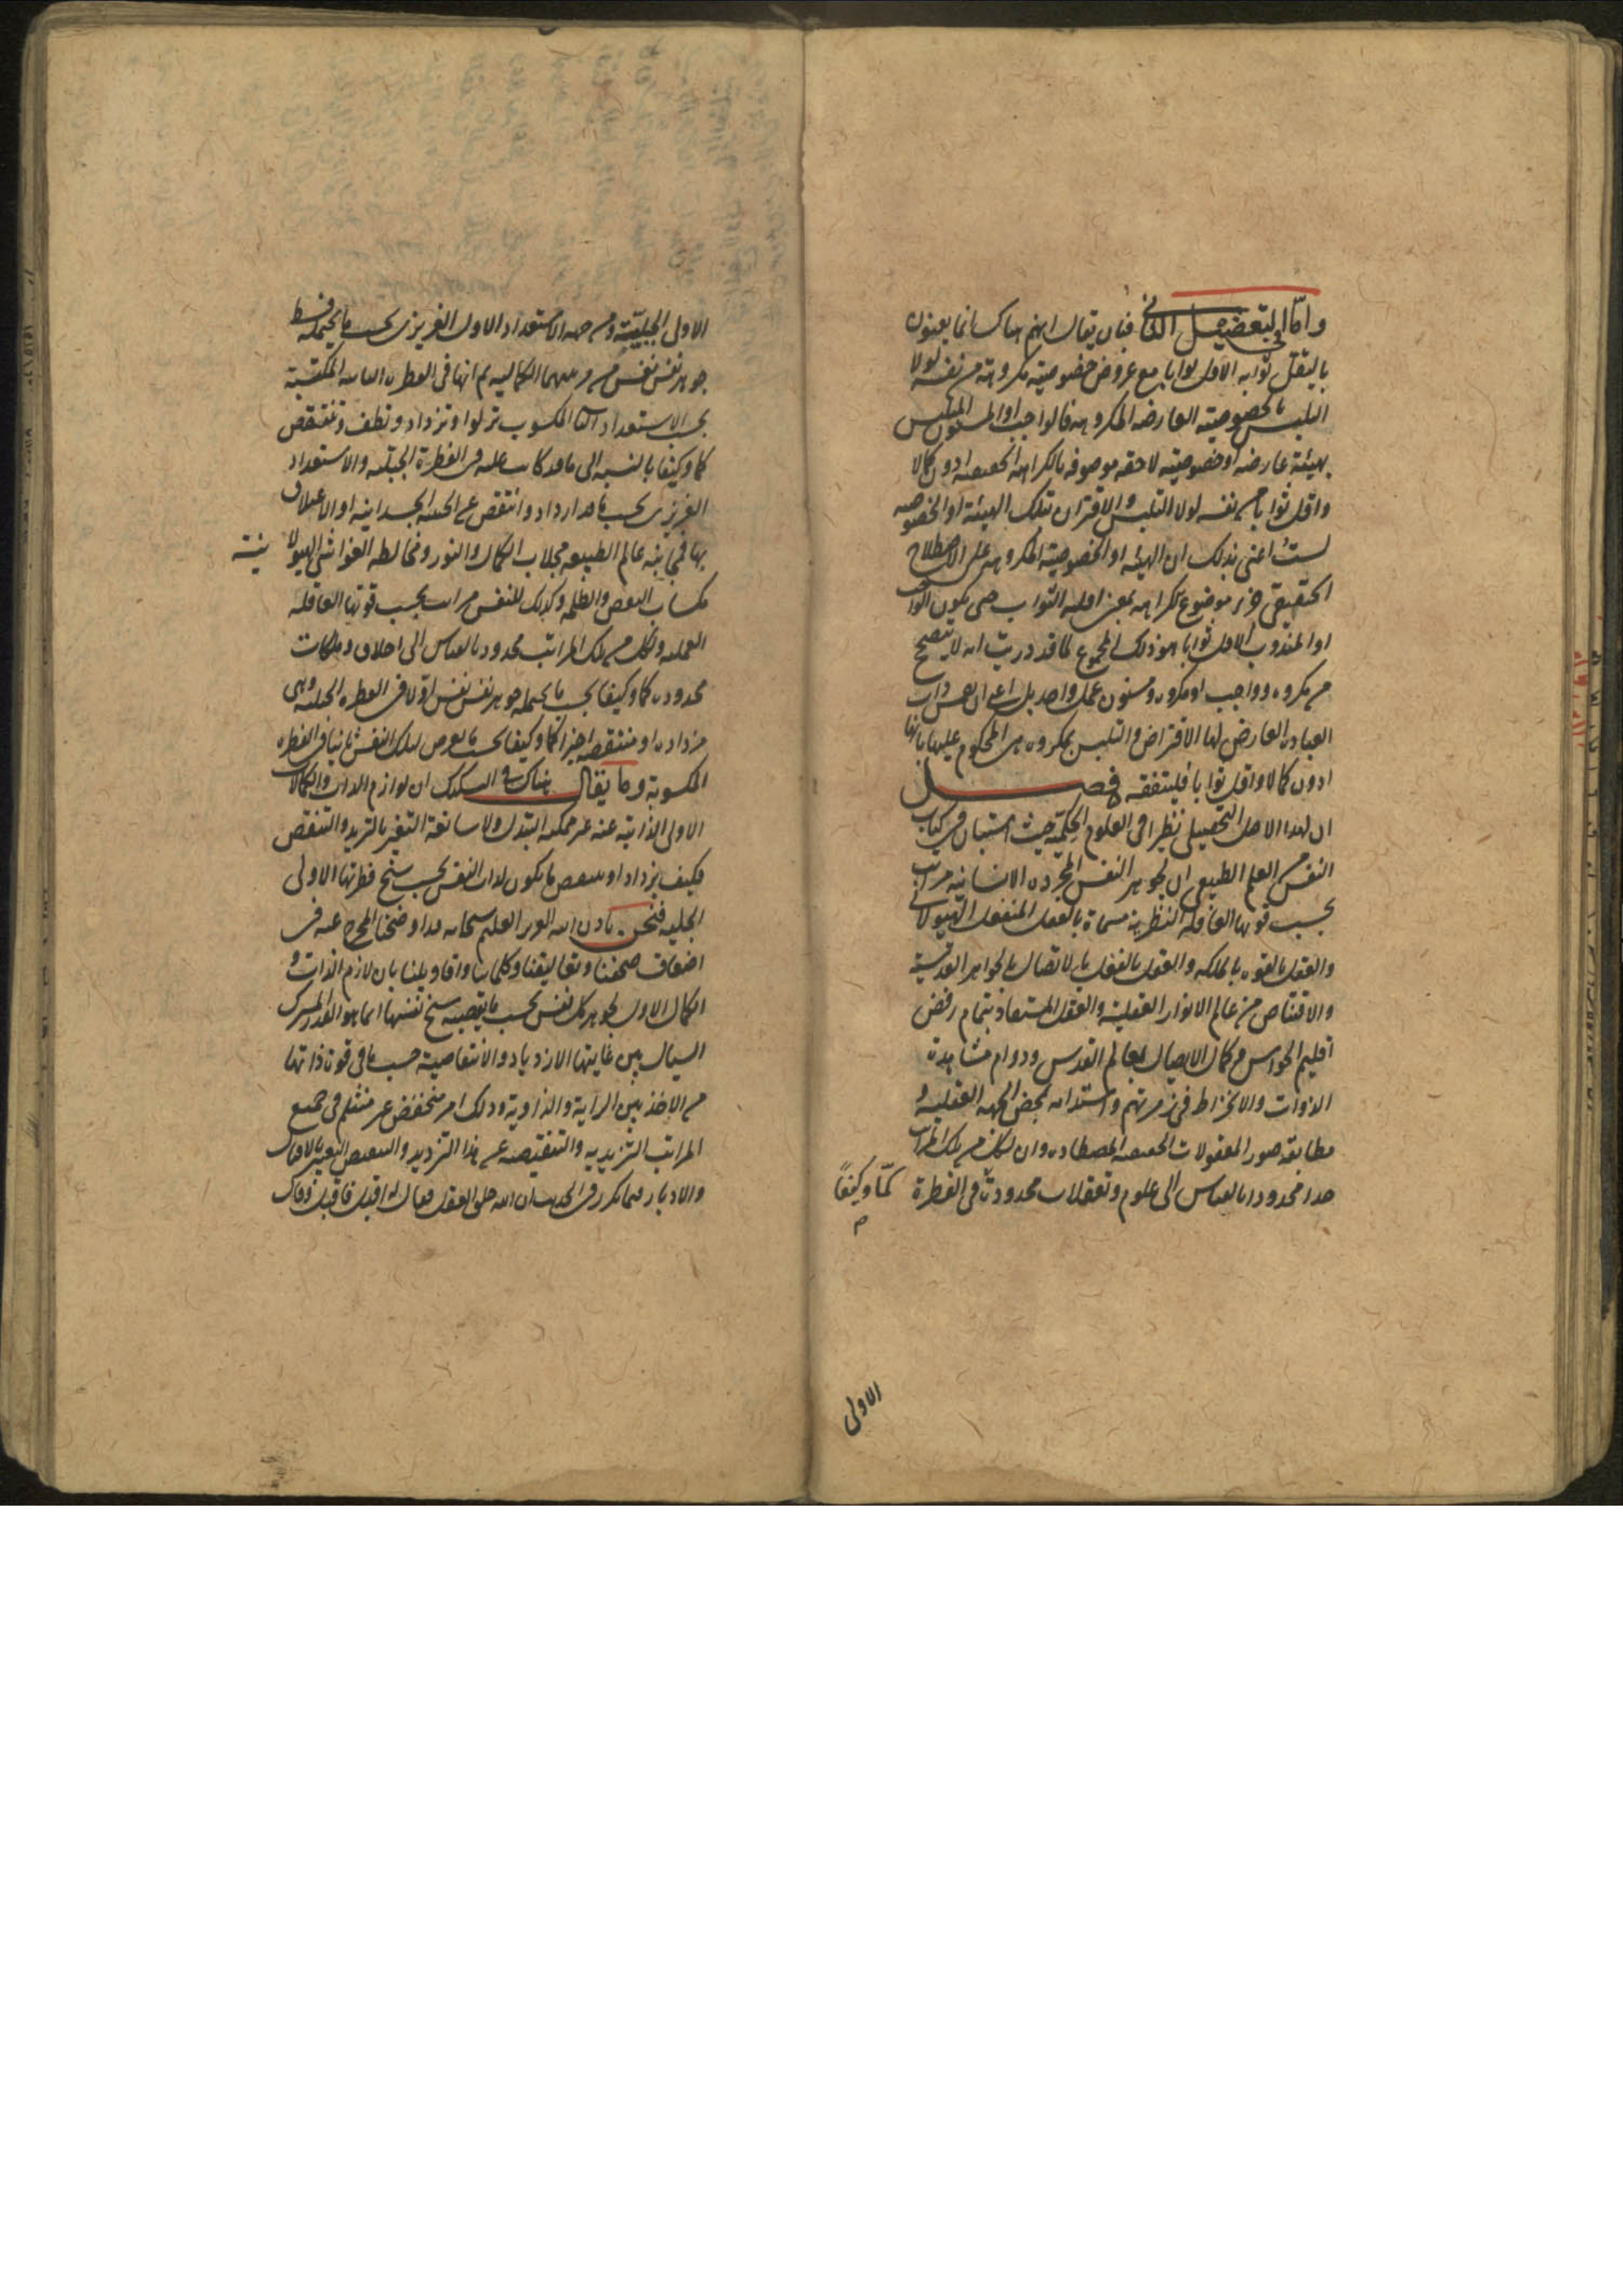 وامّا في التفضيل الثاني فبان يقال انهم هناك انما يعنون
بالتقلّل ثوابه الاقل ثوابا مع عروض خصوصيته مكروهته من نفسه لولا
التلبس بالخصوصيته العارضه المكروهه فالواجب او المسنون المتلبس
بهيئة عارضه او خصوصيته لاحقه موصوفه بالكراهه ادون كمالا
واقل ثوابا من نفسه لولا التلبس والاقتران بتلك الهيئة او الخصوصيه
لست اعنى بذلك ان الهيئه او الخصوصيته المكروهه على الاصطلاح
الحقيقى موضوع كراهه بمعنى اقليه الثواب حتى يكون الواجب
او المندوب الاقل ثوابا هو ذلك المجموع لما قد دريت انه لا يتصحح
من مكروه وواجب او مكروه ومسنون عمل واحد بل اعنى ان ذات
العباده العارض لها الاقتران والتلبس بمكروه هى المحكوم عليها بانها
ادون كمالا واقل ثوابا فليتفقه فصل
ان لهذا الاصل التحصيلى نظيرا فى العلوم الحكميّه حيث استبان فى كتاب
النفس من العلم الطبيعى ان لجوهر النفس المجرده الانسانيه مراتب
بحسب قوتها العاقله النظريه مسماة بالعقل المنفعل الهيولانى
والعقل بالقوه بالملكه والعقل بالفعل بالاتصال بالجواهر القدسية
والاقتناص من عالم الانوار العقلية والعقل المستفاد بتمام رفض
اقليم الحواس وكمال الاتصال بعالم القدس ودوام مشاهدة
الذوات والانخراط فى زمرتهم واستدامه لمحض الجهه العقليه و
مطابقة صور المعقولات وان لكل من تلك المراتب
حدا محدودا بالقياس الى علوم وتعقلات محدودة فى الفطرة كمّا وكيفاً
الاولى
الاولى الجبليّة ومن جهه الاستعداد الاول الغريزى بحسب ما يحتمله قسط
جوهر نفس نفس من الكماليه ثم انها فى الفطره الثانيه المكتسبة
بحسب الاستعداد الثانى المكسوب تربو وتزداد وتطف وتنتقص
كما وكيفا بالنسبه الى ما قد كانت عليه فى الفطرة الجبليه والاستعداد
الغريزى بحسب ما ازداد وانتقص الجسدانيه او الاعتلاق
بها فى عالم الطبيعه بجلباب الكمال والنور ومخالطه الغواشى الهيولانيته
مكسبات النقص والظلمه وكذلك للنفس مراتب بحسب قوتها العاقله
العمليه ولكل من تلك المراتب محدود بالقياس الى اخلاق وملكات
محدوده كما وكيفا بحسب ما يحتمله جوهر نفس نفس اوّلا فى الفطره الجبليه وهى
مزداده او منتقصه اخيرا كما وكيفا بحسب ما يعرض لتلك النفس ثانيا فى الفطره
المكسوبه وما يقال هناك فى التشكيك ان لوازم الذات والكمالات
الاولى الذاتيه عنه غير ممكنه التبدل ولا سائغة التغير بالتزيد والتنقص
فكيف يزداد او ينتقص ما يكون لذات النفس بحسب سنخ فطرتها الاولى
الجبليه فنحن باذن الله العزيز العليم سبحانه قد اوضحنا المخرج عنه فى
اضعاف صحفنا وتعاليقنا وكلماتنا واقاويلنا بان لازم الذات و
الكمال الاول لجوهر كل نفس بحسب ما يقتضيه سنخ نفسها انما هو القدر المشترك
السيال بين غايتها الازدياد والانتقاصية حسب ما فى قوة ذاتها
من الاخذ بين الرابية والذاوية وذلك امر منحفظ غير منثلم فى جميع
المراتب التزيديه والتنقصيه هذا التزيد والتنقص التعبير بالاقبال
والادبار فيما تكرر فى الحديث ان الله خلق العقل فقال له اقبل فاقبل وقال